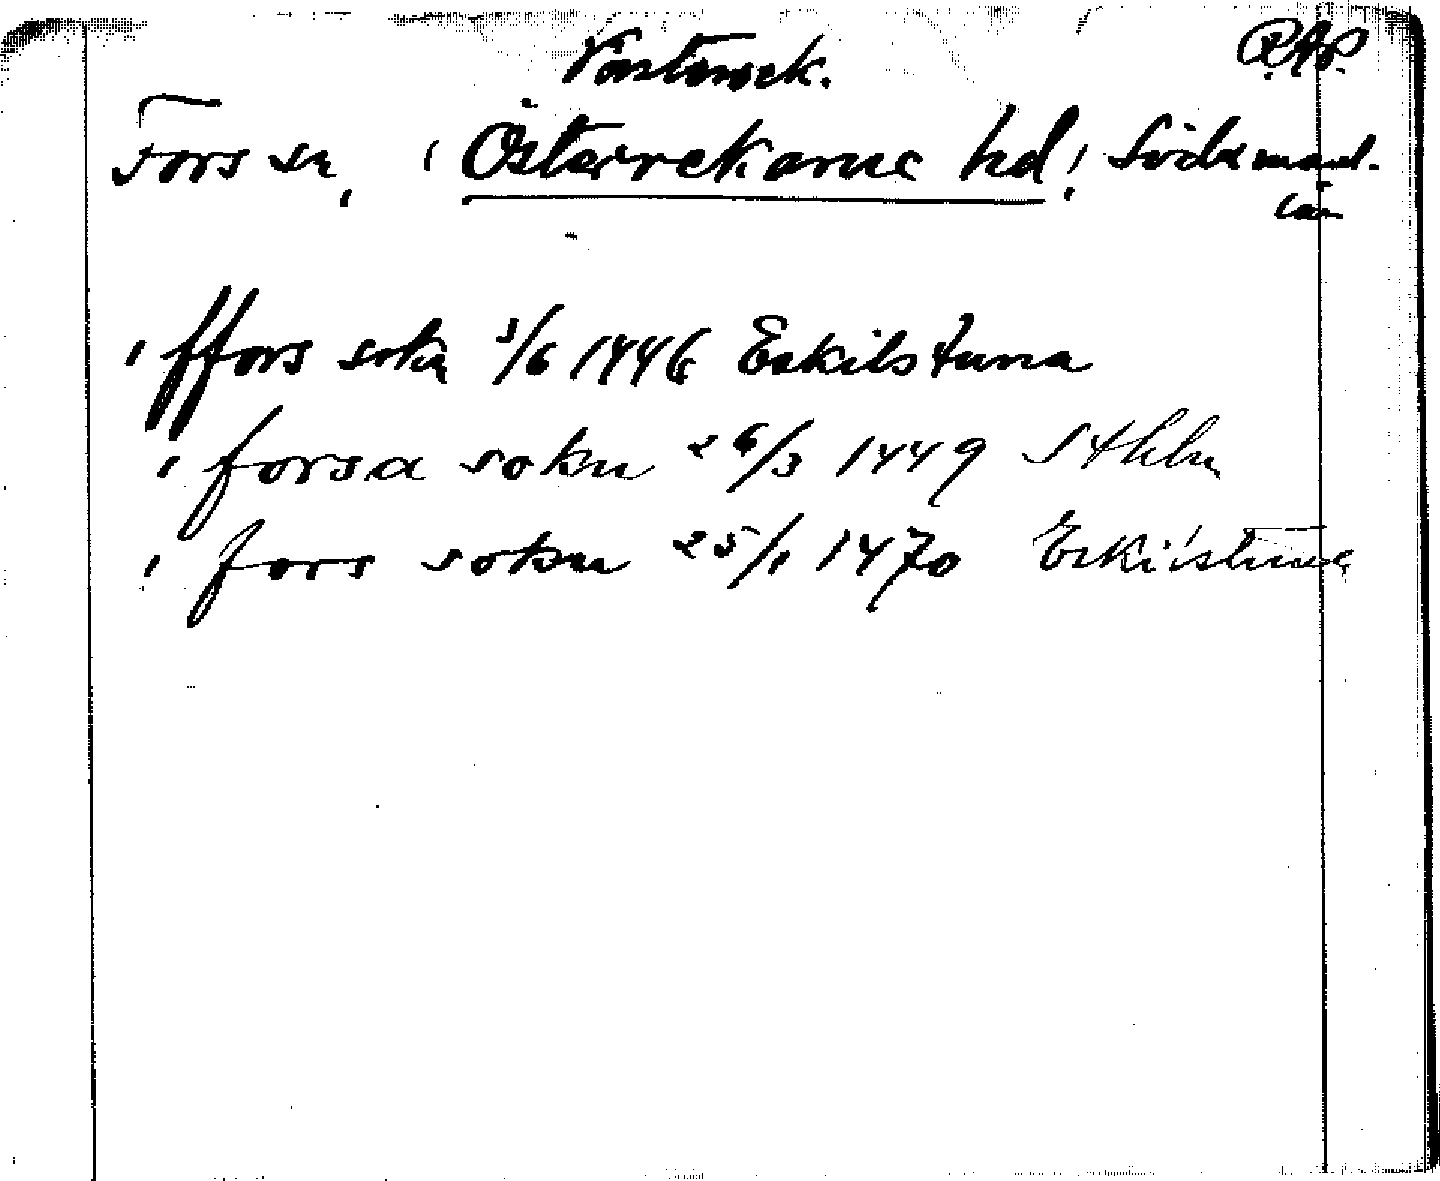 Västerrek. R.A.P.
Fors sn, i Österrekarne hd, Södermanl.
län
i ffors sokn 3/6 1446 Eskilstuna
i forsa sokn 26/3 1449 Sthlm
i fors sokn 25/1 1470 Eskilstuna